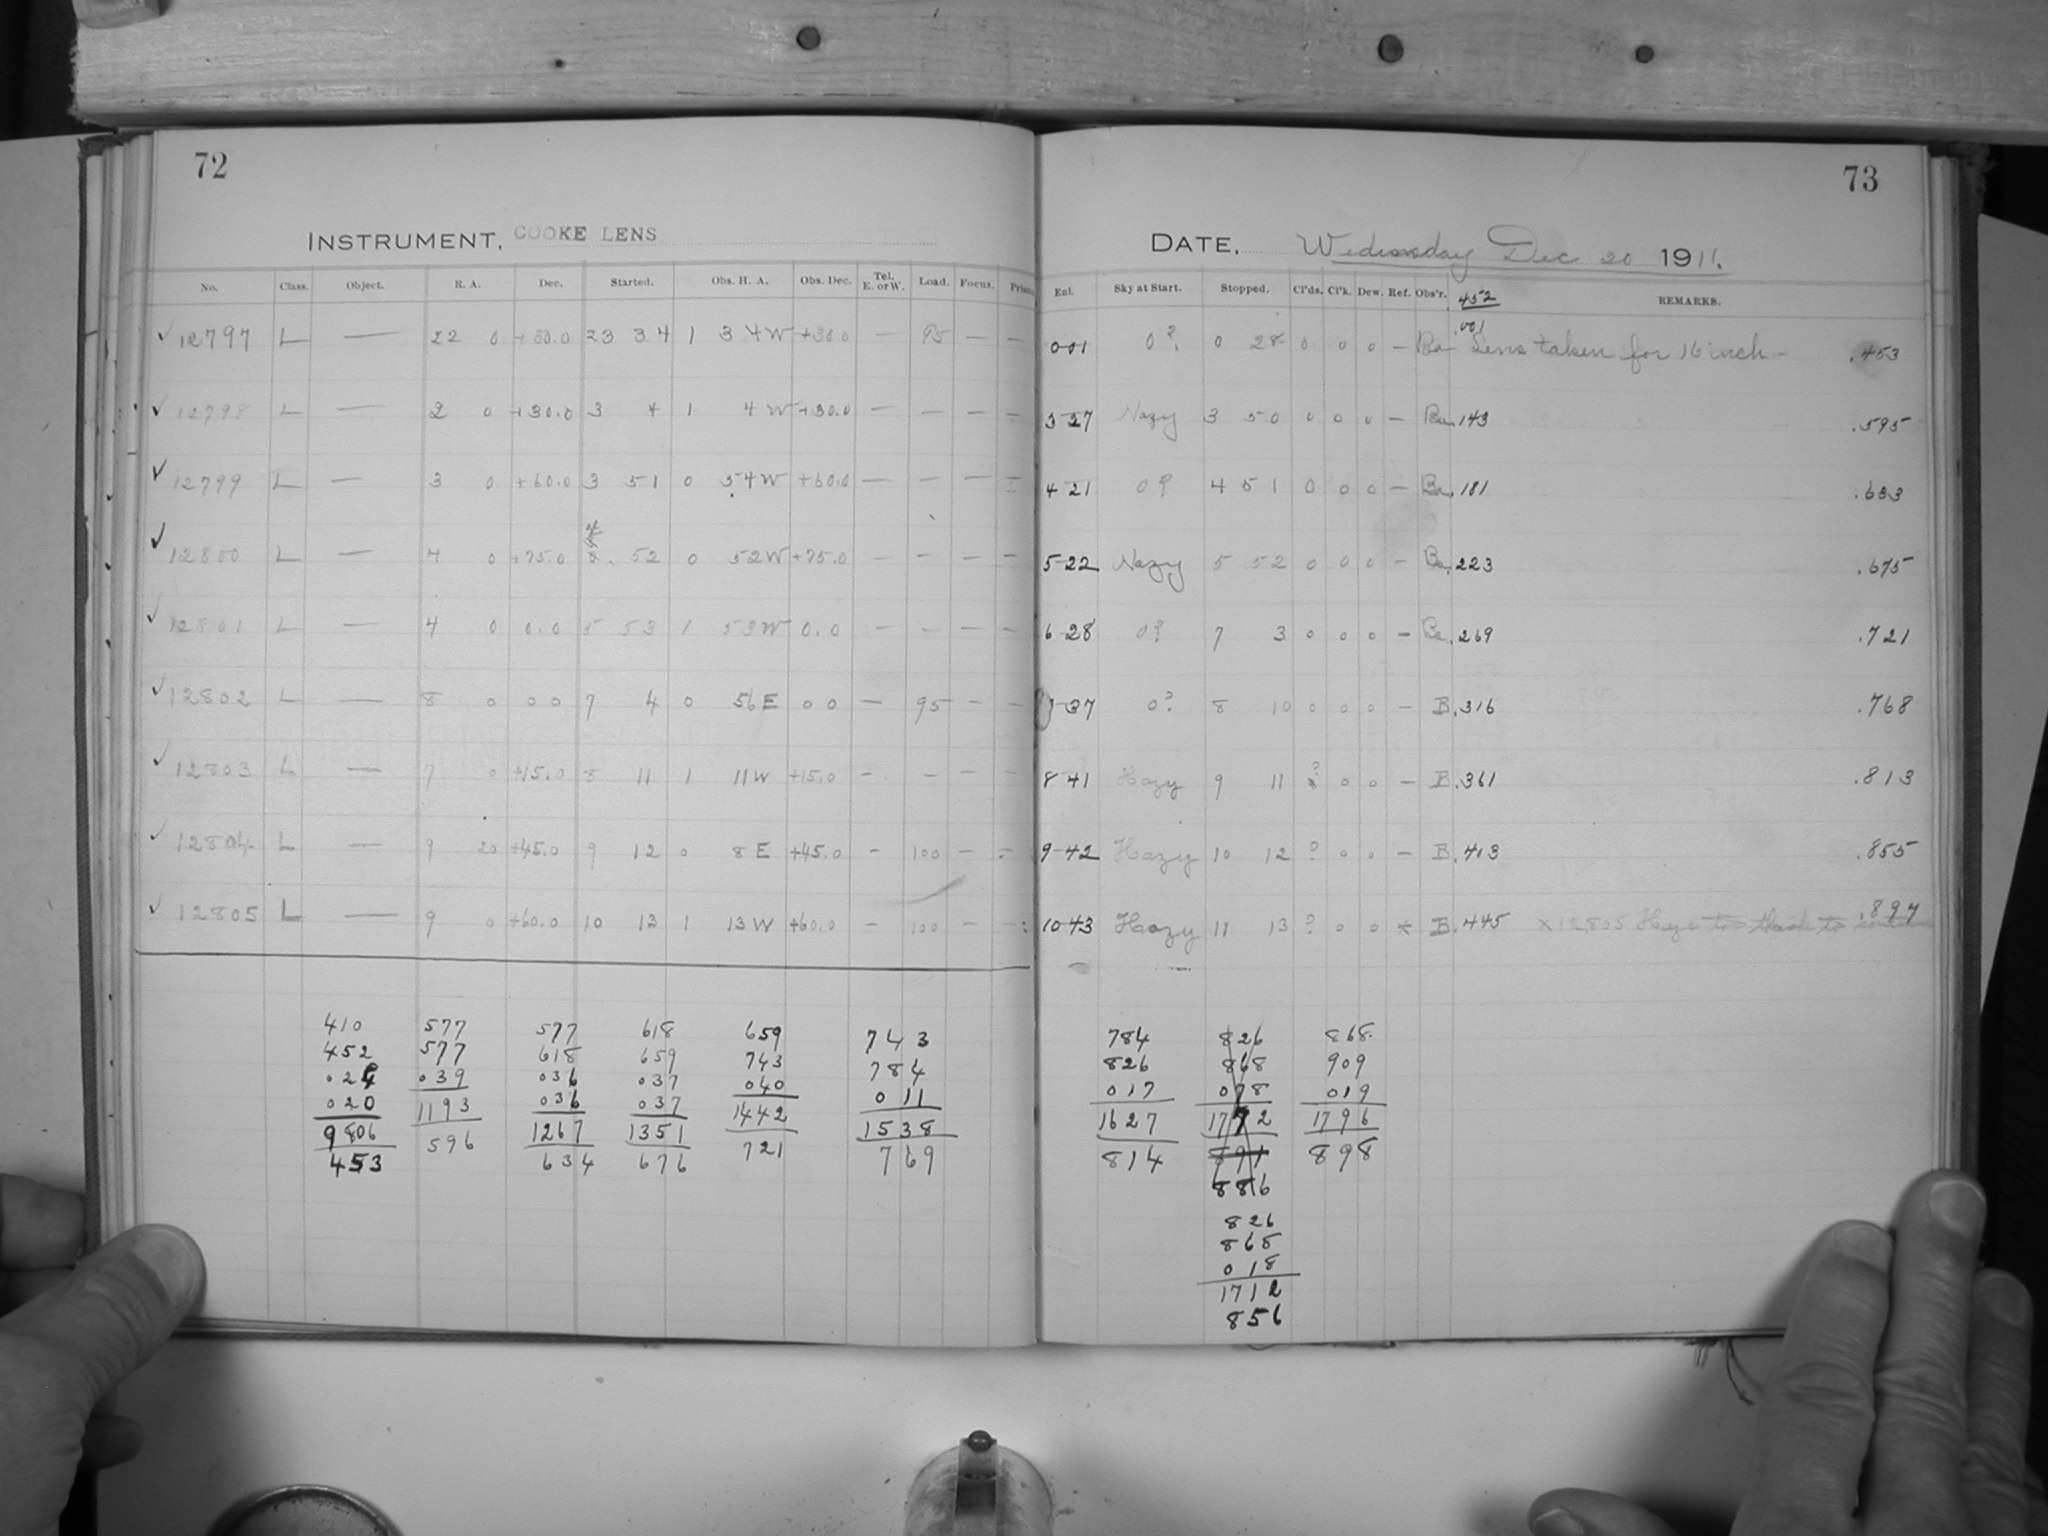 72
INSTRUMENT, COOKE LENS
No. Class. Object. R. A. Dec. Started. Obs. H. A. Obs. Dec. Tel. E. or W. Load. Focus.
✓ 12797 L — 22 0 +30.0 23 34 1 34W +30.0 — 95 — —
✓ 12798 L — 2 0 +30.0 3 4 1 4W +30.0 — — — —
✓ 12799 L — 3 0 +60.0 3 51 0 54W +60.0 — — — —
✓ 12800 L — 4 0 +75.0 4 52 0 52W +75.0 — — — —
✓ 12801 L — 4 0 0.0 5 53 1 53W 0.0 — — — —
✓ 12802 L — 8 0 00 7 4 0 56E 00 — 95 — —
✓ 12803 L — 7 0 +15.0 8 11 1 11W +15.0 — — — —
✓ 12804 L — 9 20 +45.0 9 12 0 8E +45.0 — 100 — —
✓ 12805 L — 9 0 +60.0 10 13 1 13W +60.0 — 100 — —
410 577 577 618 659 743
452 577 618 659 743 784
024 039 036 037 040 011
020 1193 036 037 1442 1538
9806 596 1267 1351 721 769
453 634 676
73
DATE. Wednesday Dec 20 1911.
Enl. Sky at Start. Stopped. Cl'ds. Cl'k. Dew. Ref. Obs'r. 452 REMARKS.
.001
001 0? 0 28 0 0 0 — Ba Lens taken for 16 inch — .453
3-27 Hazy 3 50 0 0 0 — Ba .143 .595
4-21 0? 4 51 0 0 0 — Ba .181 .633
5-22 Hazy 5 52 0 0 0 — Ba .223 .675
6-28 0? 7 3 0 0 0 — Ba .269 .721
7-37 0? 8 10 0 0 0 — B .316 .768
8-41 Hazy 9 11 ? 0 0 — B .361 .813
9-42 Hazy 10 12 ? 0 0 — B .403 .855
10-43 Hazy 11 13 ? 0 0 * B .445 x 12805 Haze too thick to continue .897
784 826 868
826 868 909
017 078 019
1627 1772 1796
814 891 898
886
826
868
018
1712
856